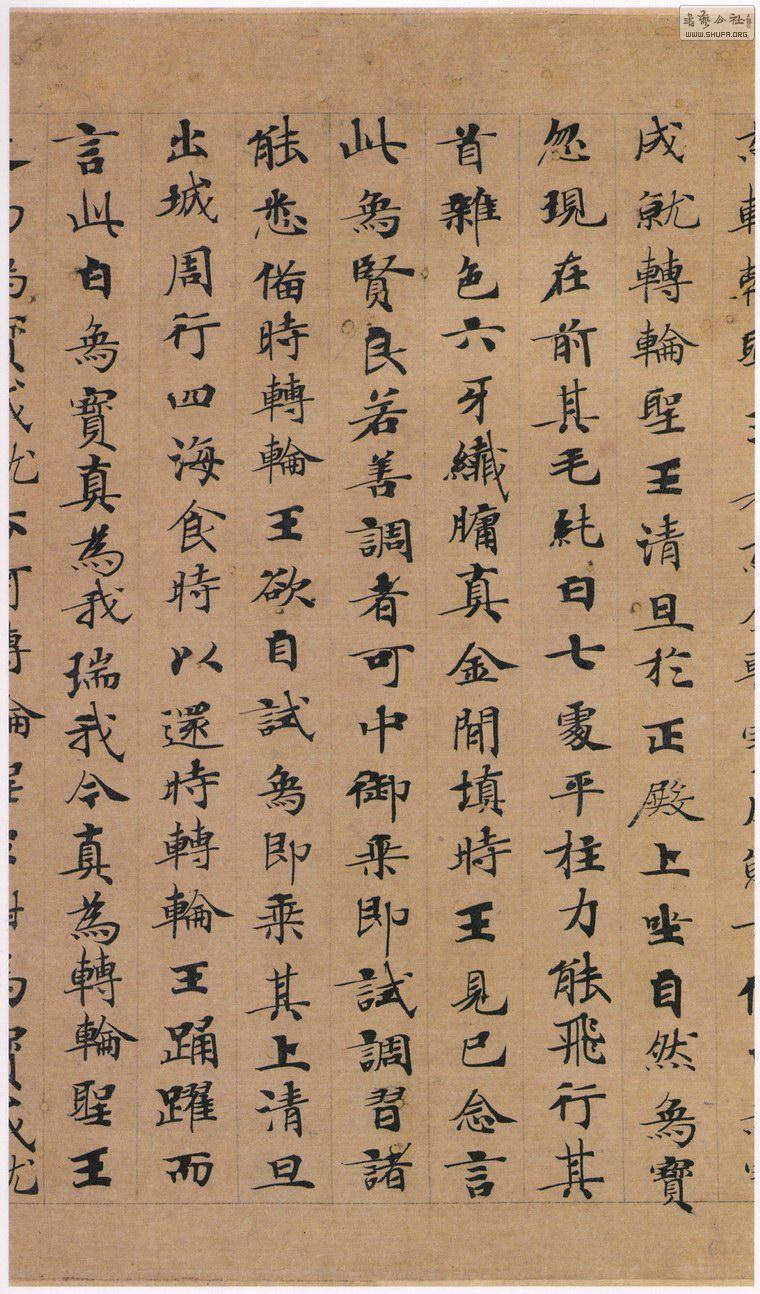 成就轉輪聖王清旦於正殿上坐自然象寶
忽現在前其毛純白七處平柱力能飛行其
首雜色六牙纖𦟛真金間填時王見已念言
此象賢良若善調者可中御乘即試調習諸
能悉備時轉輪王欲自試象即乘其上清旦
出城周行四海食時以還時轉輪王踊躍而
言此白象寶真為我瑞我今真為轉輪聖王
書藝公社
WWW.SHUFA.ORG